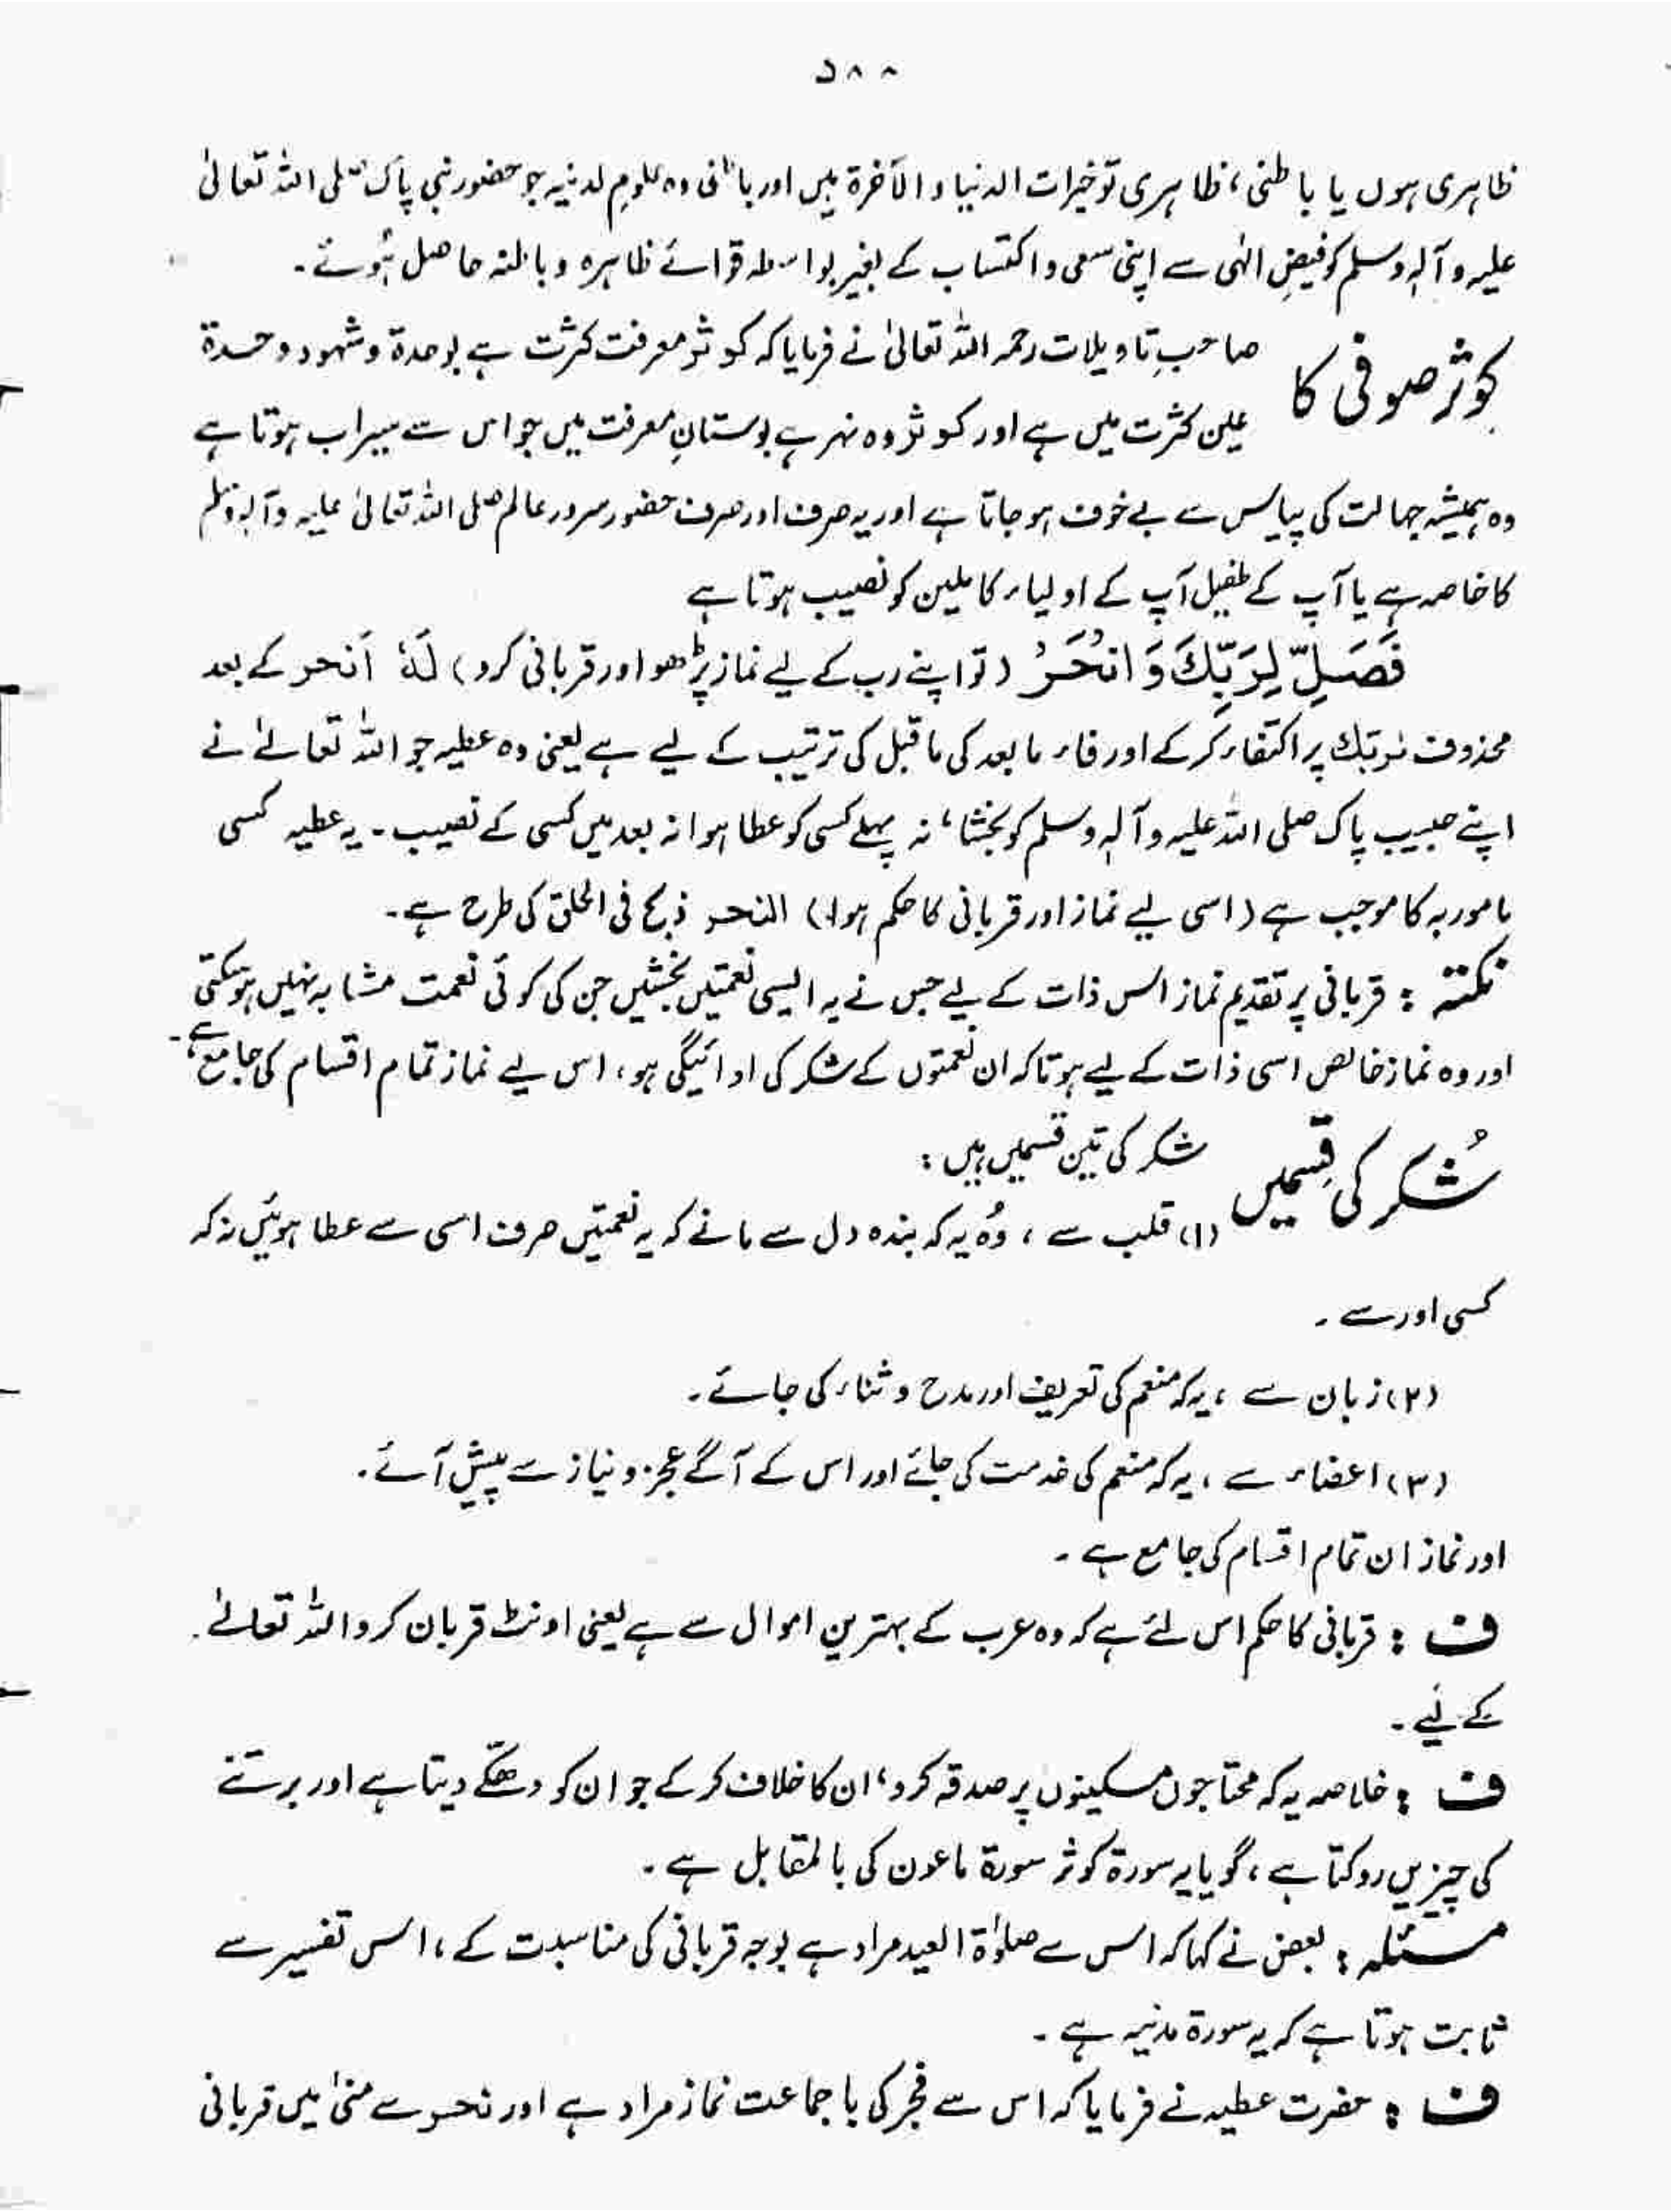 ۵۸۸
ظاہری ہوں یا باطنی، ظاہری تو خیرات الدنیا و الآخرۃ ہیں اور باطنی وہ علومِ لدنیہ جو حضور نبی پاک صلی اللہ تعالیٰ
علیہ وآلہٖ وسلم کو فیضِ الٰہی سے اپنی سعی و اکتساب کے بغیر بواسطہ قوائے ظاہرہ و باطنہ حاصل ہُوئے۔
کوثر صوفی کا صاحبِ تاویلات رحمہ اللہ تعالیٰ نے فرمایا کہ کوثر معرفت کثرت ہے بوحدۃ و شہود وحدۃ
عین کثرت میں ہے اور کوثر وہ نہر ہے بوستانِ معرفت میں جو اس سے سیراب ہوتا ہے
وہ ہمیشہ جہالت کی پیاس سے بے خوف ہو جاتا ہے اور یہ صرف اور صرف حضور سرور عالم صلی اللہ تعالیٰ علیہ وآلہٖ وسلم
کا خاصہ ہے یا آپ کے طفیل آپ کے اولیاء کاملین کو نصیب ہوتا ہے
فَصَلِّ لِرَبِّكَ وَانْحَرْ (تو اپنے رب کے لیے نماز پڑھو اور قربانی کرو) لَہٗ اَنحر کے بعد
محذوف لربك پر اکتفاء کرکے اور فاء ما بعد کی ماقبل کی ترتیب کے لیے ہے یعنی وہ عطیہ جو اللہ تعالےٰ نے
اپنے حبیب پاک صلی اللہ علیہ وآلہٖ وسلم کو بخشا، نہ پہلے کسی کو عطا ہوا نہ بعد میں کسی کے نصیب۔ یہ عطیہ کسی
مامور بہ کا موجب ہے (اسی لیے نماز اور قربانی کا حکم ہوا) النحر ذبح فی الحلق کی طرح ہے۔
نکتہ : قربانی پر تقدیم نماز اس ذات کے لیے جس نے یہ ایسی نعمتیں بخشیں جن کی کوئی نعمت مشابہ نہیں ہوسکتی
اور وہ نماز خالص اسی ذات کے لیے ہو تاکہ ان نعمتوں کے شکر کی ادائیگی ہو، اس لیے نماز تمام اقسام کی جامع ہے۔
شُکر کی قِسمیں شکر کی تین قسمیں ہیں :
(۱) قلب سے، وُہ یہ کہ بندہ دل سے مانے کہ یہ نعمتیں صرف اسی سے عطا ہوئیں نہ کہ
کسی اور سے۔
(۲) زبان سے، یہ کہ منعم کی تعریف اور مدح و ثناء کی جائے۔
(۳) اعضاء سے، یہ کہ منعم کی خدمت کی جائے اور اس کے آگے عجز و نیاز سے پیش آئے۔
اور نماز ان تمام اقسام کی جامع ہے۔
ف : قربانی کا حکم اس لئے ہے کہ وہ عرب کے بہترین اموال سے ہے یعنی اونٹ قربان کرو اللہ تعالےٰ
کے لیے۔
ف : خلاصہ یہ کہ محتاجوں مسکینوں پر صدقہ کرو، ان کا خلاف کرکے جو ان کو دھکّے دیتا ہے اور برتنے
کی چیزیں روکتا ہے، گویا یہ سورۃ کوثر سورۃ ماعون کی بالمقابل ہے۔
مسئلہ : بعض نے کہا کہ اس سے صلوٰۃ العید مراد ہے بوجہ قربانی کی مناسبت کے، اس تفسیر سے
ثابت ہوتا ہے کہ یہ سورۃ مدنیہ ہے۔
ف : حضرت عطیہ نے فرمایا کہ اس سے فجر کی باجماعت نماز مراد ہے اور نحر سے منیٰ میں قربانی